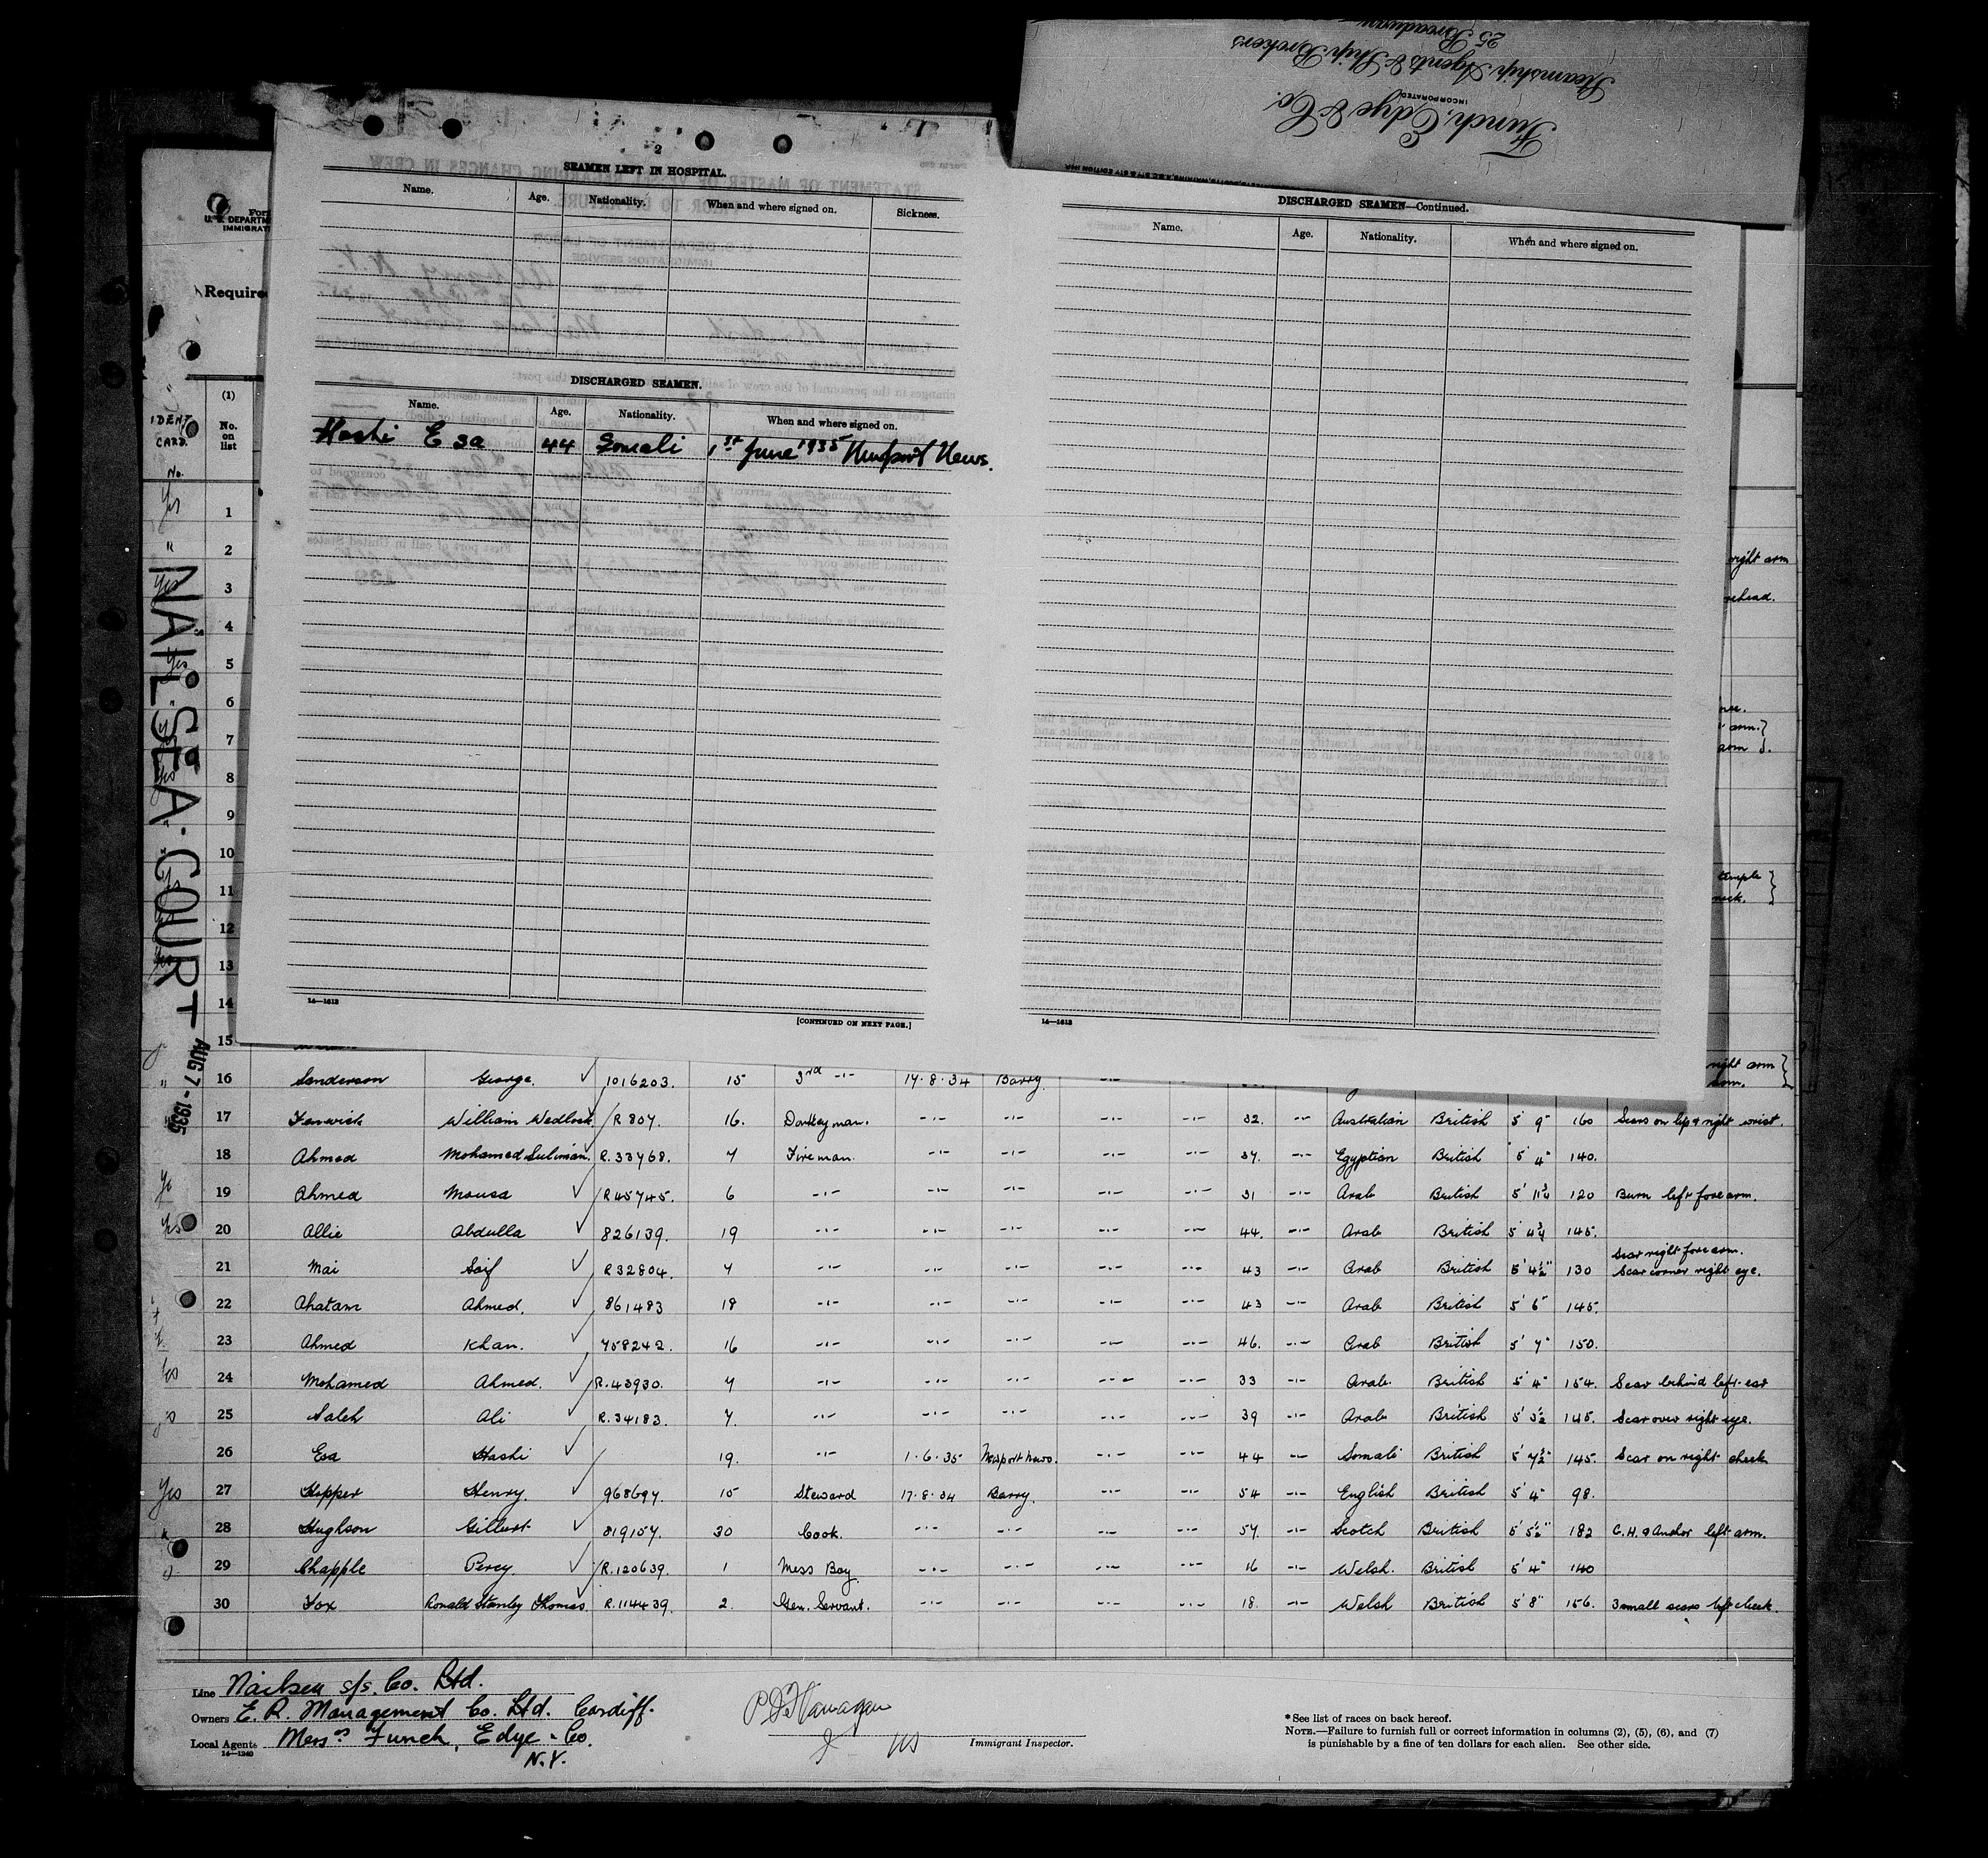 Funch, Edye & Co.
INCORPORATED
Steamship Agents & Ship Brokers
25 Broadway
2
SEAMEN LEFT IN HOSPITAL.
Name. Age. Nationality. When and where signed on. Sickness.
DISCHARGED SEAMEN.
Name. Age. Nationality. When and where signed on.
Hashi Esa 44 Somali 1st June 1935 Newport News.
14—1613
[CONTINUED ON NEXT PAGE.]
DISCHARGED SEAMEN—Continued.
Name. Age. Nationality. When and where signed on.
14—1613
U. S. DEPARTM
IMMIGRAT
Require
(1)
No. on list
IDENT CARD. No.
NAILSEA COURT
AUG 7 - 1935
1
2 right arm
3 rehead.
4
5
6
7 arm.}
8
9
10
11 temple }
neck.
12
13
14
15
right arm }
16 Sanderson George. ✓ 1016203. 15 3rd -"- 17.8.34 Barry. -"-
17 Fenwick William Wedlock ✓ R 807. 16. Donkeyman. -"- -"- -"- -"- 32. -"- Australian British 5' 9" 160 Scars on lip & right wrist.
18 Ahmed Mohamed Suliman. ✓ R.33768. 7 Fireman. -"- -"- -"- -"- 37. -"- Egyptian British 5' 4" 140.
19 Ahmed Mousa ✓ R45745. 6 -"- -"- -"- -"- -"- 31 -"- Arab British 5' 11¾ 120 Burn left forearm.
20 Allie Abdulla ✓ 826139. 19 -"- -"- -"- -"- -"- 44. -"- Arab British 5' 4¾ 145.
Scar right forearm.
21 Mai Saif ✓ R32804. 7 -"- -"- -"- -"- -"- 43 -"- Arab British 5' 4½" 130 Scar corner right eye.
22 Ahatam Ahmed. ✓ 861483 18 -"- -"- -"- -"- -"- 43 -"- Arab British 5' 6" 145.
23 Ahmed Khan. ✓ 758242. 16 -"- -"- -"- -"- -"- 46. -"- Arab British 5' 7" 150.
24 Mohamed Ahmed. ✓ R.43930. 7 -"- -"- -"- -"- -"- 33 -"- Arab. British 5' 4" 154. Scar behind left ear
25 Saleh Ali ✓ R.34183. 7. -"- -"- -"- -"- -"- 39 -"- Arab British 5' 3½ 145. Scar over right eye.
26 Esa Hashi ✓ 19. -"- 1.6.35 Newport News. -"- -"- 44 -"- Somali British 145. Scar on right cheek
27 Hopper Henry. ✓ 968697. 15 Steward 17.8.34 Barry. -"- -"- 54 -"- English British 5' 4" 98.
28 Hughson Gilbert ✓ 819157. 30 Cook. -"- -"- -"- -"- 57. -"- Scotch British 5' 5½" 182 G.H. & Anchor left arm.
29 Chapple Percy. ✓ R.120639. 1 Mess Boy. -"- -"- -"- -"- 16 -"- Welsh. British 5' 4" 140
30 Fox Ronald Stanley Thomas. ✓ R.114439. 2. Gen. Servant. -"- -"- -"- -"- 18. -"- Welsh British 5' 8" 156. 3 small scars left cheek.
Line Nailsea s/s. Co. Ltd.
Owners E. R. Management Co. Ltd. Cardiff.
Local Agents Messrs Funch, Edye & Co.
14—1240
N.Y.
Immigrant Inspector.
* See list of races on back hereof.
NOTE.—Failure to furnish full or correct information in columns (2), (5), (6), and (7)
is punishable by a fine of ten dollars for each alien. See other side.